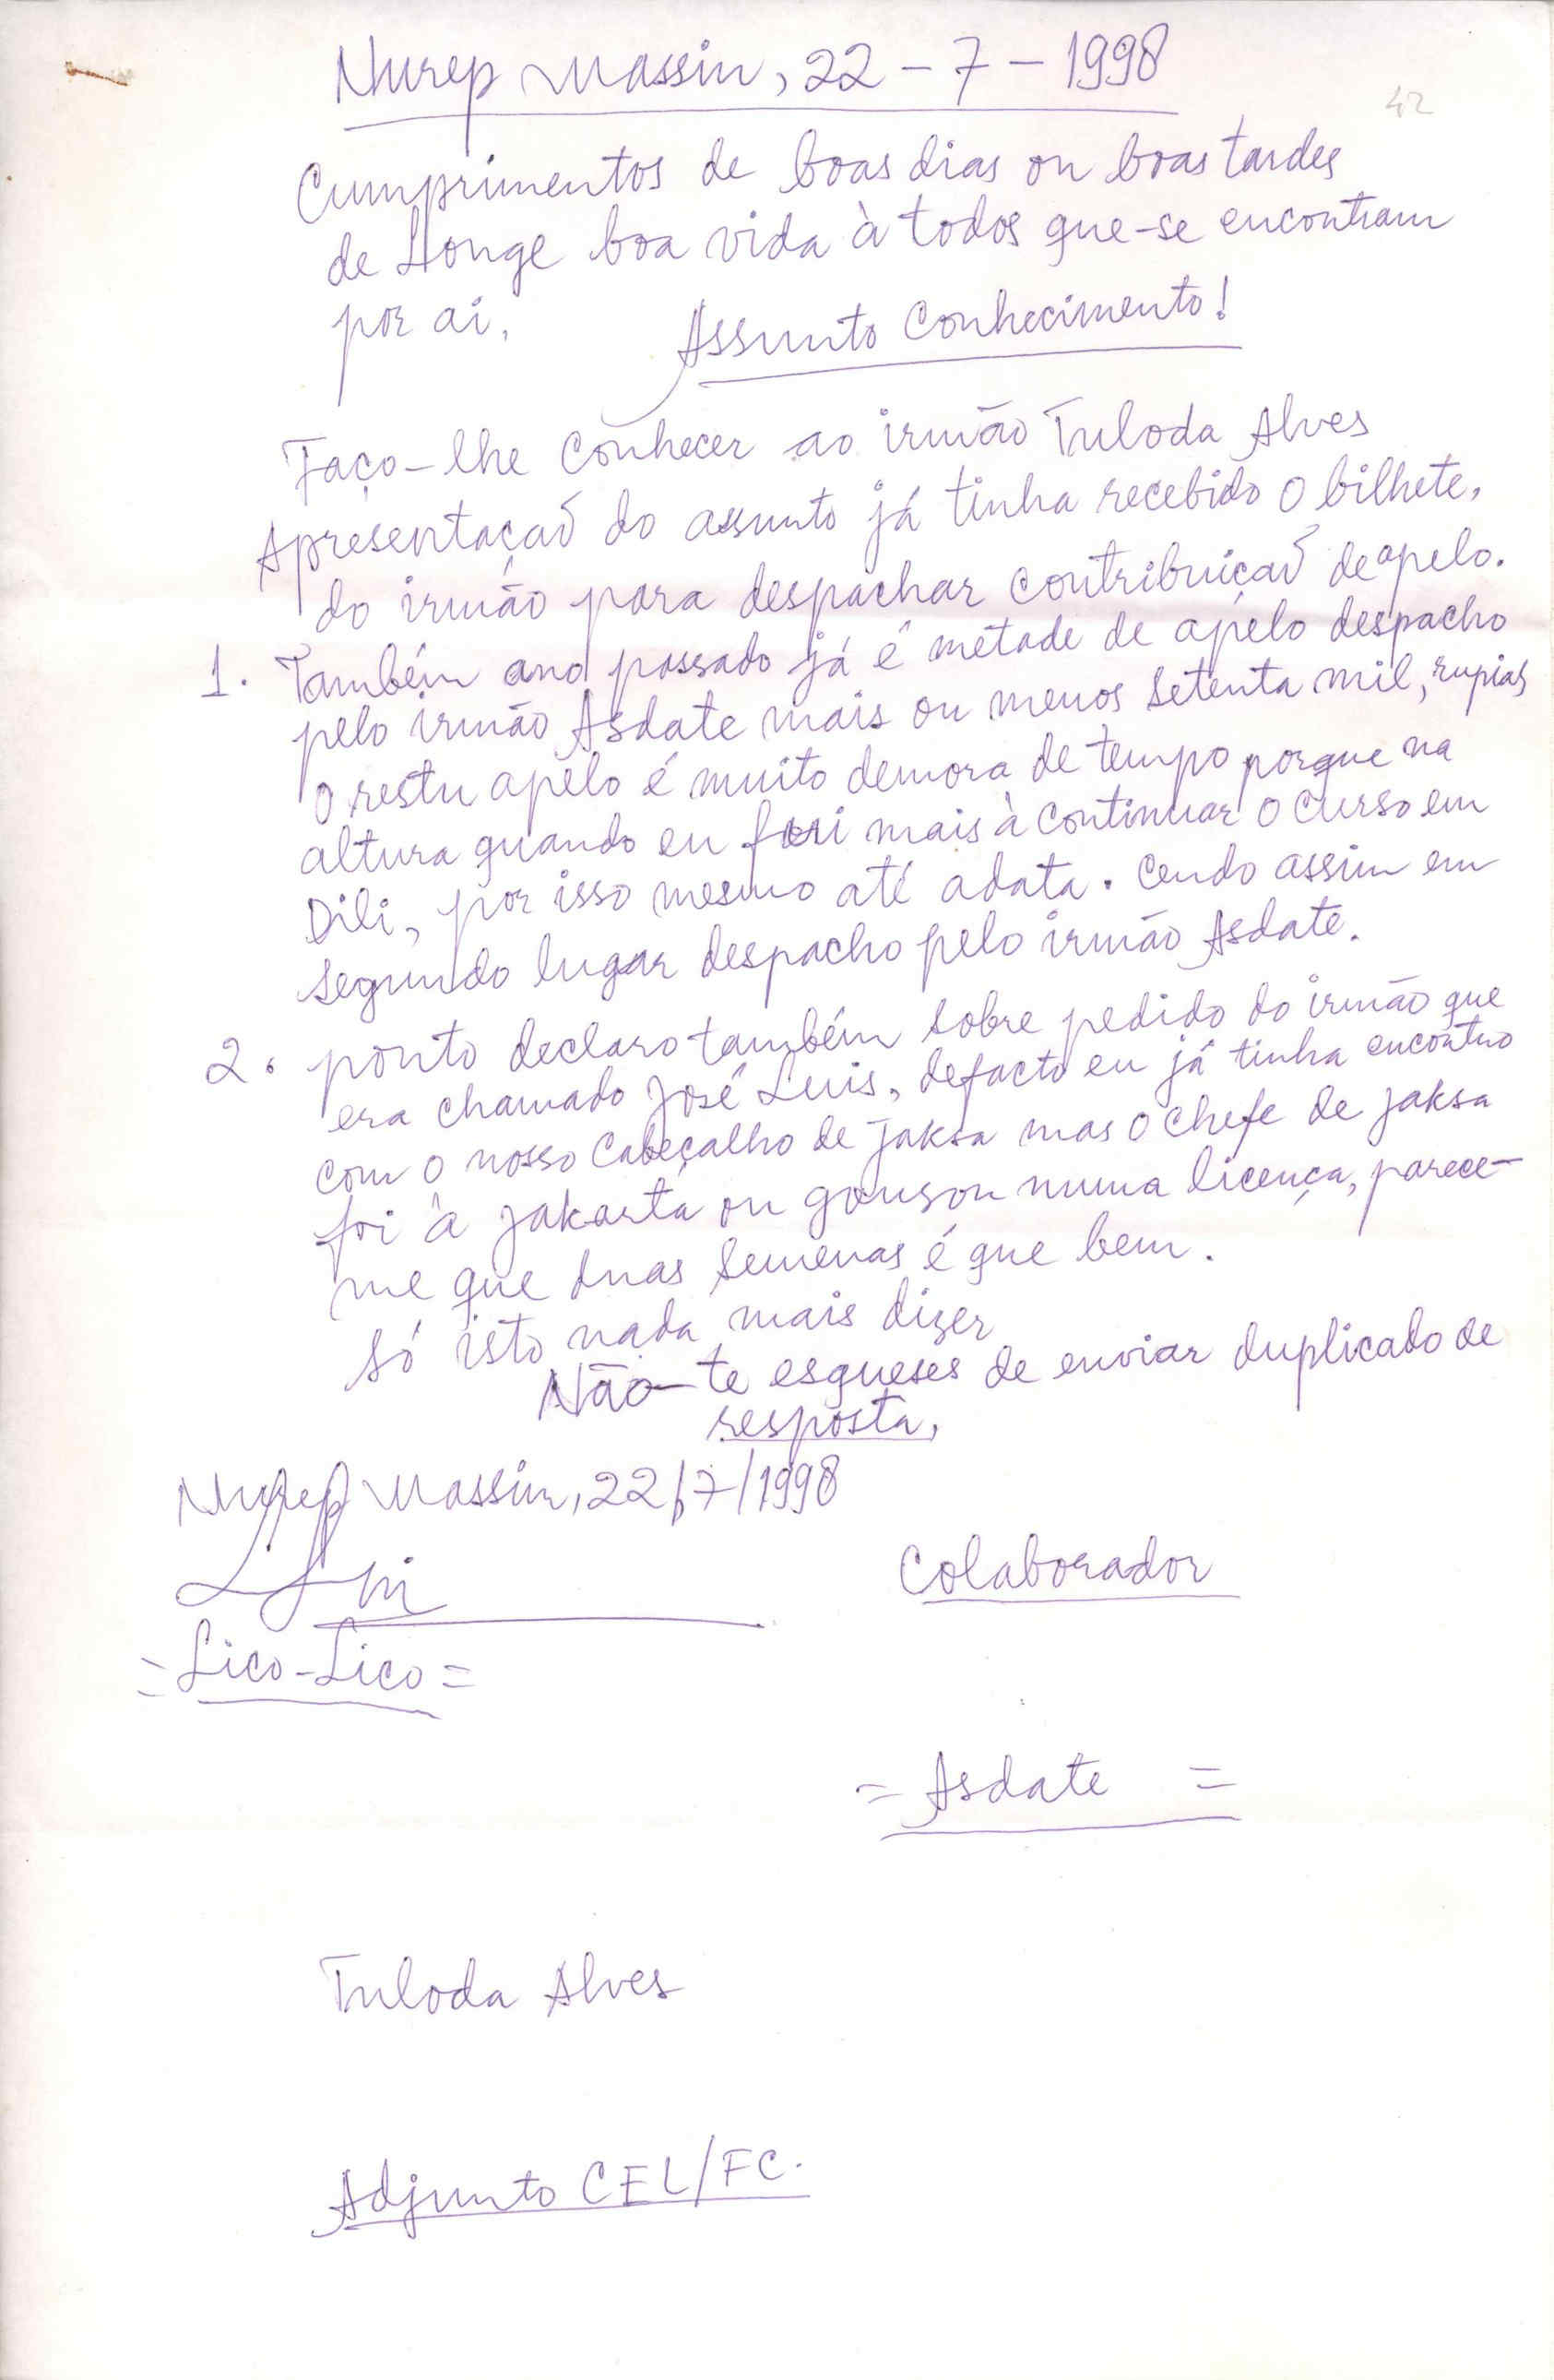 Nurep Massin, 22 - 7 - 1998
42
Cumprimentos de boas dias ou boas tardes
de Longe boa vida à todos que-se encontram
por ai,
Assunto Conhecimento!
Faço-lhe Conhecer ao irmão Tuloda Alves
Apresentaçaõ do assunto já tinha recebido o bilhete,
do irmão para despachar contribuiçaõ de apelo.
1. Também ano passado já é metade de apélo despacho
pelo irmão Asdate mais ou menos setenta mil, rupias
o restu apélo é muito demora de tempo porque na
altura quando eu fui mais à continuar o curso em
Dili, por isso mesmo até a data. Cendo assim em
segundo lugar despacho pelo irmão Asdate.
2. ponto declaro também sobre pedido do irmão que
era chamado José Luis, defacto eu já tinha encontro
com o nosso Cabeçalho de Jaksa mas o chefe de jaksa
foi à Jakarta ou numa licença, parece-
me que duas semenas é que bem.
Só isto nada mais dizer
Não-te esqueses de enviar duplicado de
resposta,
Nurep Massin, 22/7/1998
Colaborador
= Lico-Lico =
= Asdate =
Tuloda Alves
Adjunto CEL/FC.